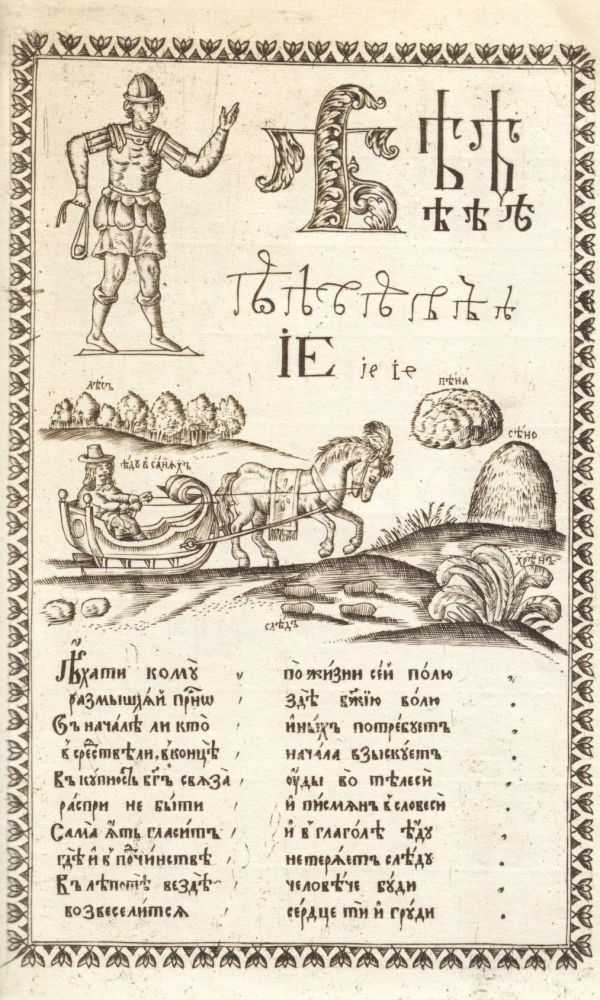 Ѣ Ѣ Ѣ
ѣ ѣ ѣ
ѣ ѣ ѣ ѣ ѣ ѣ ѣ
ІЕ іе іе
лѣсъ
пѣна
сѣно
ѣду в санѧхъ
хрѣнъ
слѣдъ
Ѣхати кому̀ по жи́зни се́й по́лю
размышлѧ́й при́сно здѣ̀ бж҃їю во́лю
Съ нача́лѣ ли кто̀ и҆ны́хъ потре́буетъ
в сре́дствѣ ли, в концѣ̀ нача́ла взы́скуетъ
Въ ку́пность бг҃ъ свѧза̀ ѹ҆́ды во тѣлесѝ
ра́спри не бы́ти и҆ пи́смѧнъ в словесѝ
Сама̀ ѧ҆́ть гласи́тъ и҆ в глаго́лѣ ѣ҆́ду
гдѣ̀ и҆ в почи́нствѣ не терѧ́етъ слѣ́ду
Въ лѣ́потѣ вездѣ̀ человѣ́че бу́ди
возвесели́тсѧ се́рдце ти̑ и҆ гру́ди